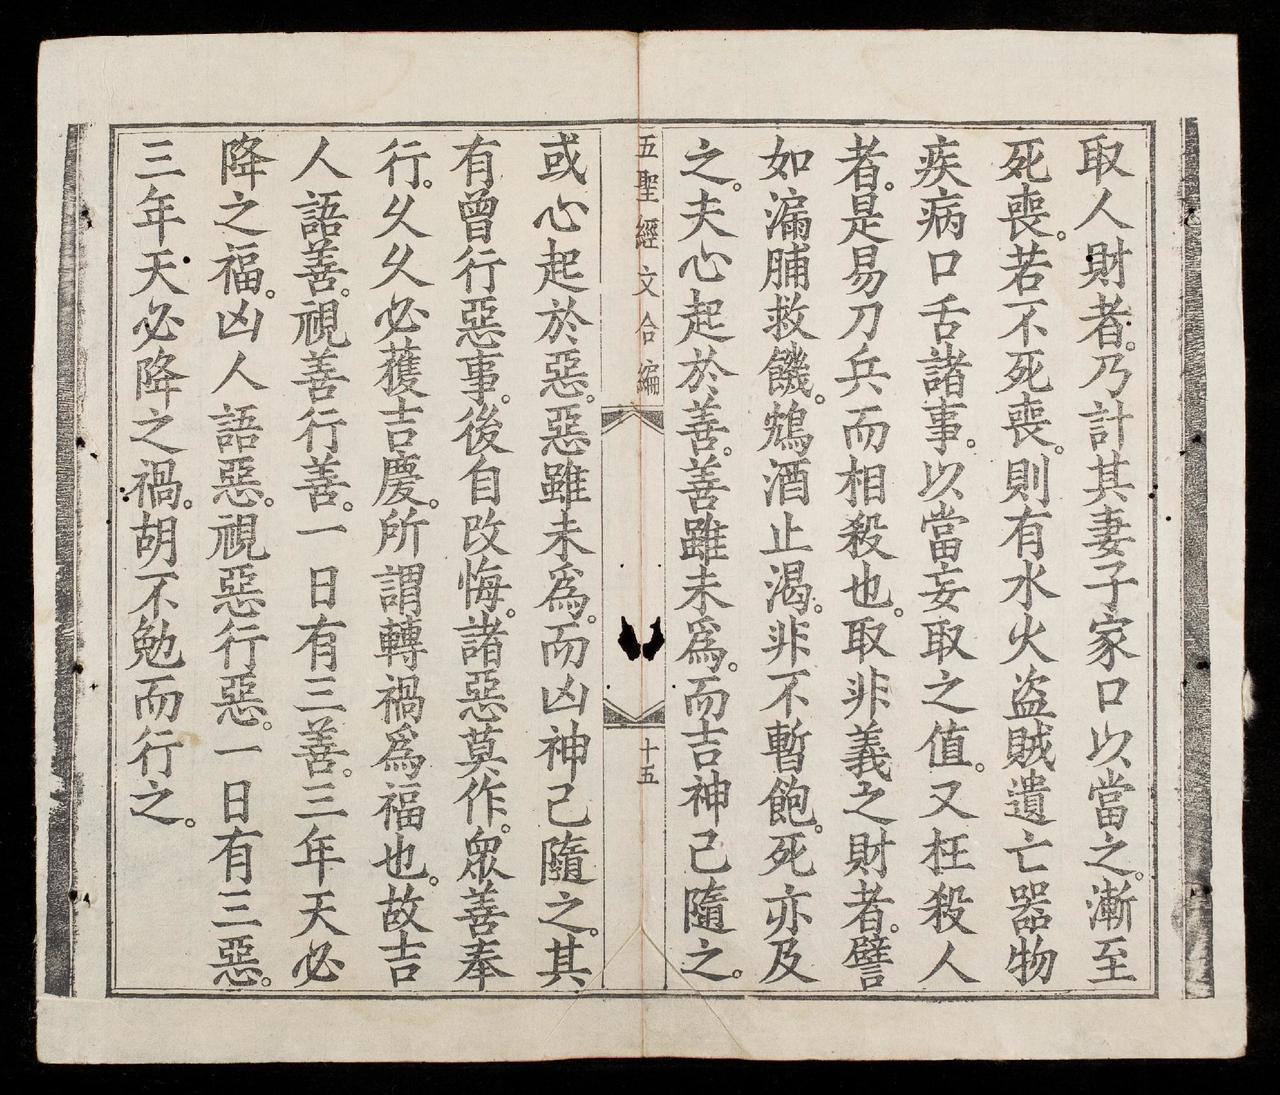 取人財者。乃計其妻子家口以當之。漸至
死喪。若不死喪。則有水火盜賊遺亡器物
疾病口舌諸事。以當妄取之值。又枉殺人
者。是易刀兵而相殺也。取非義之財者。譬
如漏脯救饑。鴆酒止渴。非不暫飽。死亦及
之。夫心起於善。善雖未為。而吉神已隨之。
五聖經文合編
十五
或心起於惡。惡雖未為。而凶神已隨之。其
有曾行惡事。後自改悔。諸惡莫作。眾善奉
行。久久必獲吉慶。所謂轉禍為福也。故吉
人語善。視善行善。一日有三善。三年天必
降之福。凶人語惡。視惡行惡。一日有三惡。
三年天必降之禍。胡不勉而行之。